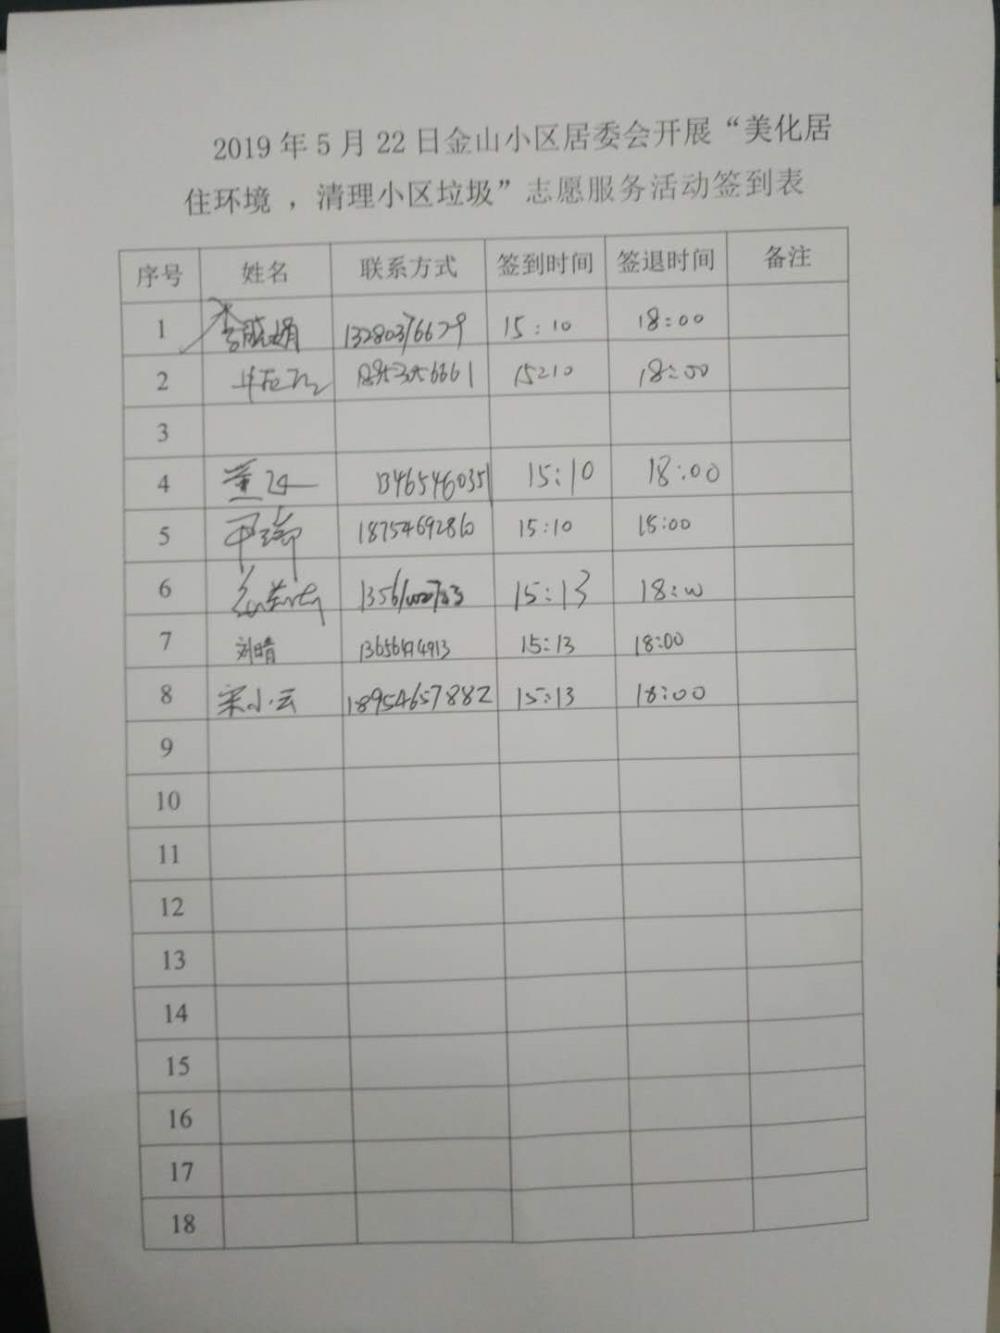 2019年5月22日金山小区居委会开展“美化居
住环境，清理小区垃圾”志愿服务活动签到表
序号 姓名 联系方式 签到时间 签退时间 备注
1 李晓娟 13280376679 15:10 18:00
2 15:10 18:00
3
4 13465460351 15:10 18:00
5 18754692860 15:10 18:00
6 15:13 18:00
7 刘晴 15:13 18:00
8 宋小云 18954657882 15:13 18:00
9
10
11
12
13
14
15
16
17
18